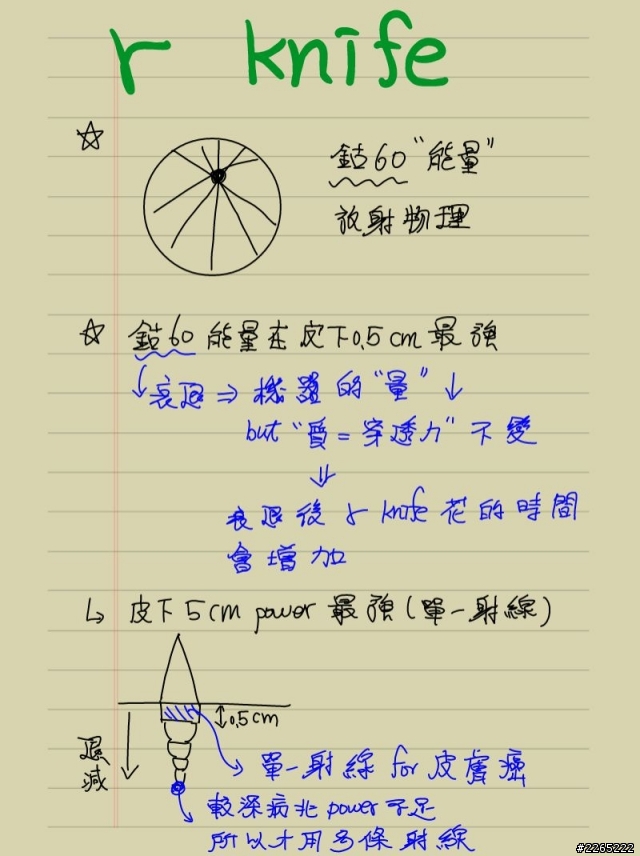 r knife
☆ 鈷60 "能量"
放射物理
☆ 鈷60 能量在皮下0.5cm最強
↓衰退 ⇒ 機器的"量" ↓
but "質=穿透力" 不變
⇓
衰退後 r knife 花的時間
會增加
↳ 皮下5cm power 最強(單一射線)
↕0.5cm
退減
單一射線 for 皮膚癌
較深病兆 power 不足
所以才用多條射線
#2265222